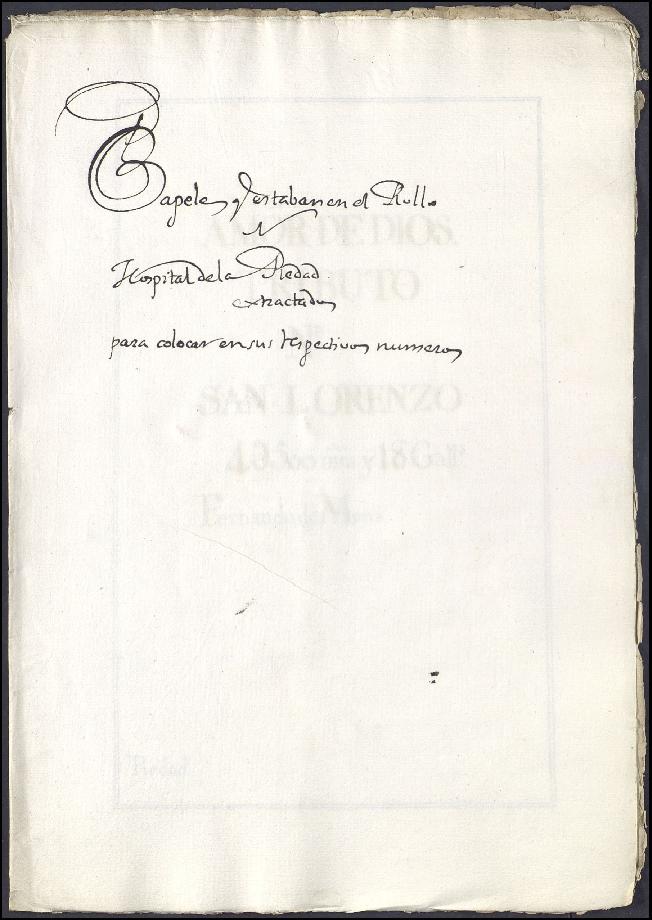 Papeles q estaban en el Rollo
N
Hospital de la Piedad
extractados
para colocar en sus respectivos numeros
AMOR DE DIOS.
TRIBUTO
SAN LORENZO
y 18 Gall
Fernando de
Piedad